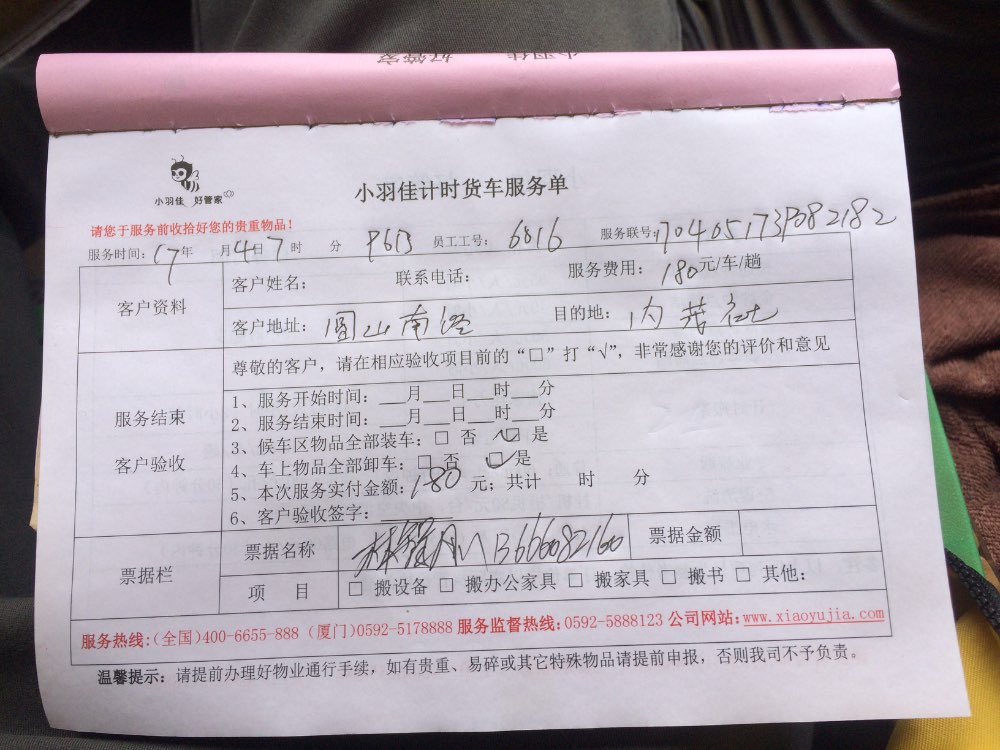 小羽佳 好管家
小羽佳 好管家
小羽佳计时货车服务单
请您于服务前收拾好您的贵重物品！
服务时间：17年 月4日7时 分 P6B 员工工号：6816 服务联号：
客户资料
客户姓名： 联系电话： 服务费用：180元/车/趟
客户地址：圆山南路 目的地：内茂社
服务结束
客户验收
尊敬的客户，请在相应验收项目前的“□”打“√”，非常感谢您的评价和意见
1、服务开始时间：___月___日___时___分
2、服务结束时间：___月___日___时___分
3、候车区物品全部装车：□ 否 ☑ 是
4、车上物品全部卸车：□ 否 ☑ 是
5、本次服务实付金额：180元；共计 时 分
6、客户验收签字：
票据栏
票据名称 13666082160 票据金额
项 目 □ 搬设备 □ 搬办公家具 □ 搬家具 □ 搬书 □ 其他：
服务热线:(全国)400-6655-888 (厦门)0592-5178888 服务监督热线:0592-5888123 公司网站:www.xiaoyujia.com
温馨提示：请提前办理好物业通行手续，如有贵重、易碎或其它特殊物品请提前申报，否则我司不予负责。